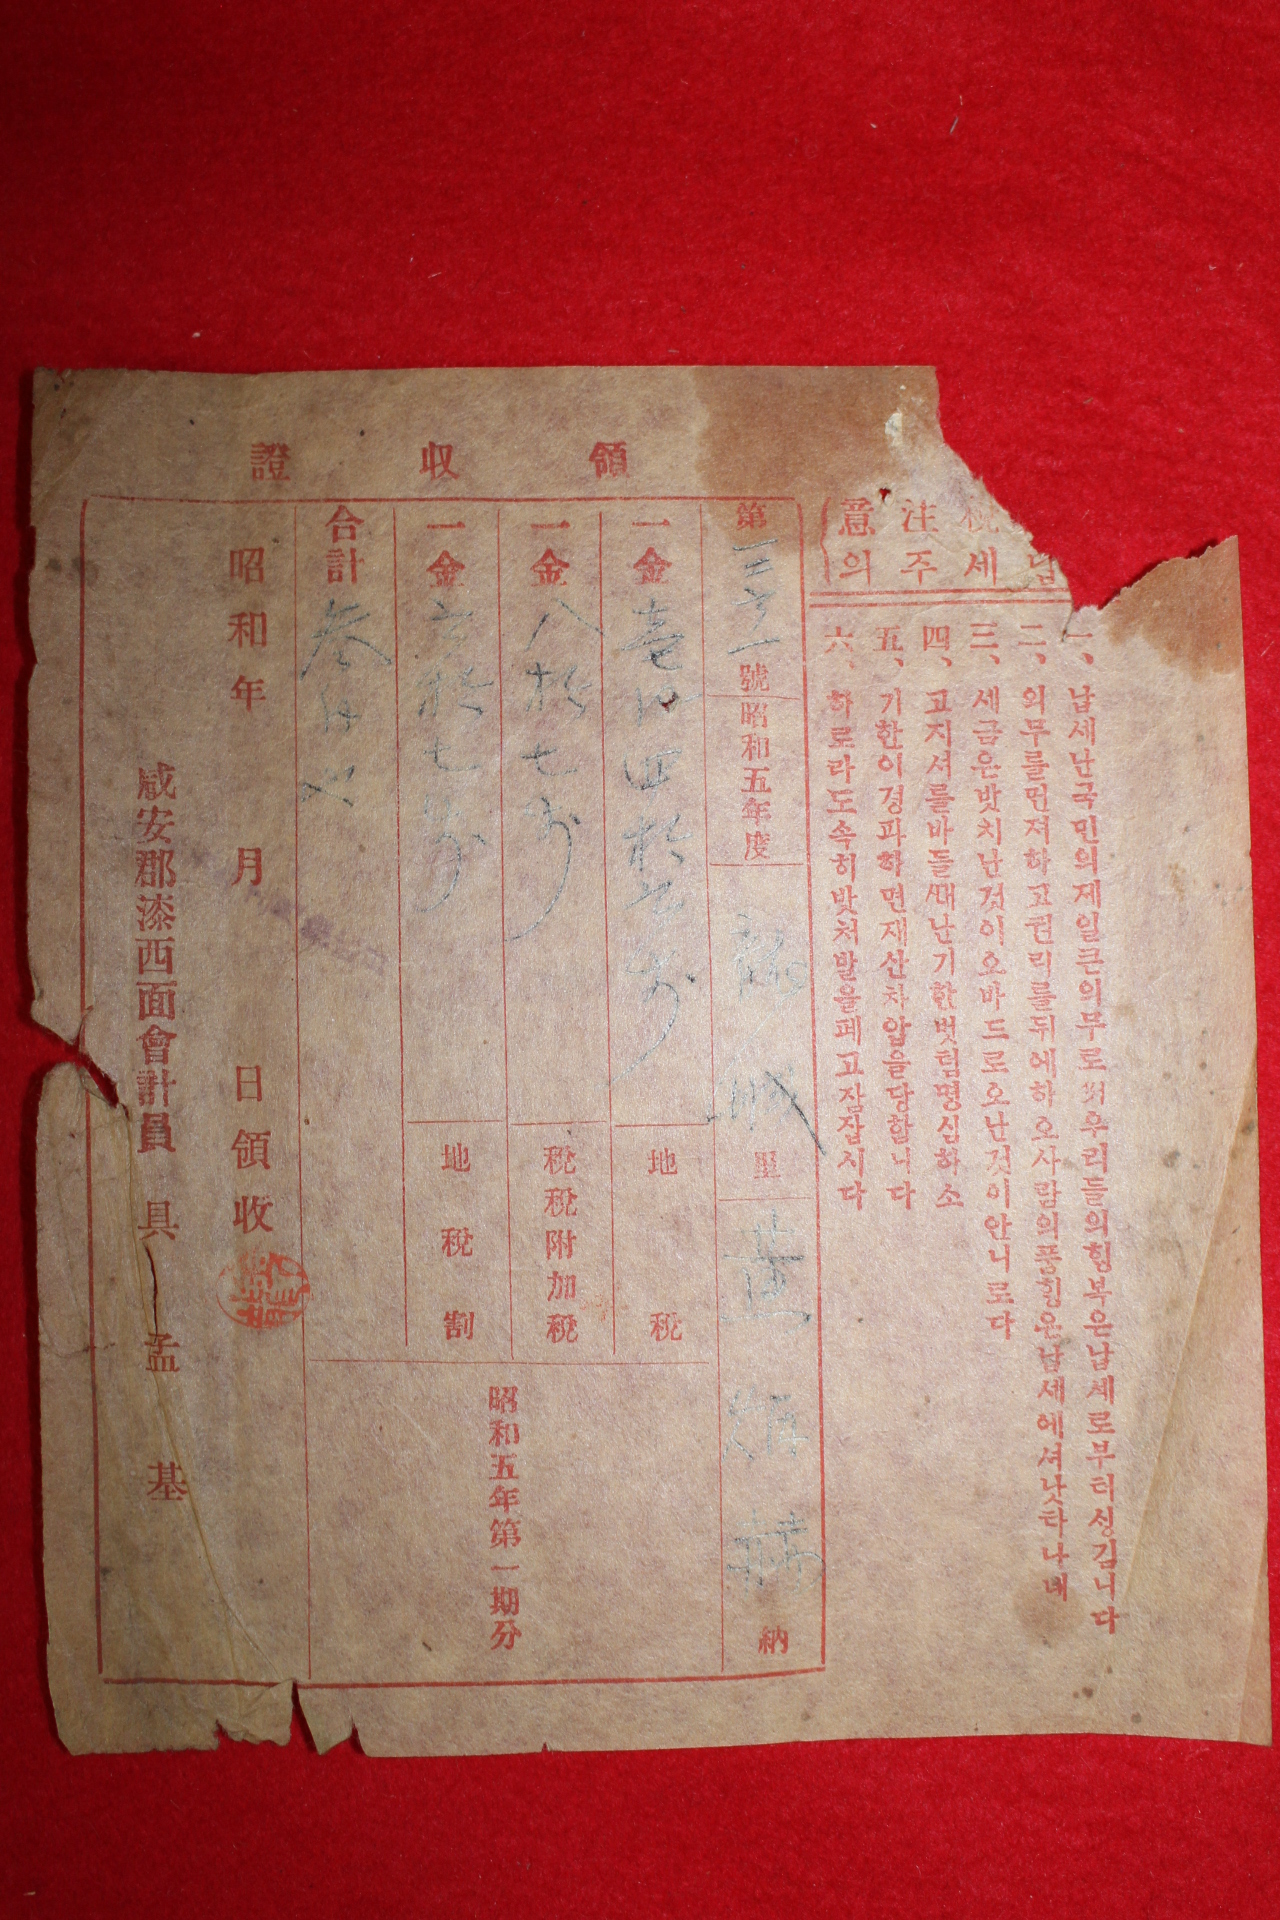 稅注意
납세주의
一、납세난국민의제일큰의무로써우리들의힝복은납세로부터싱김니다
二、의무를먼져하고권리를뒤에하오사람의풍힝은납세에셔낫타나네
三、세금은밧치난것이오바드로오난것이안니로다
四、고지셔를바들때난기한벗텀명심하소
五、기한이경과하면재산차압을당합니다
六、하로라도속히밧쳐발을폐고잠잡시다
領收證
第 號 昭和五年度 里 黃 赫 納
一金壹円四拾 地稅
一金八拾七 地稅附加稅
一金 拾七 地稅割
合計參円
昭和五年第一期分
昭和年 月 日領收
咸安郡漆西面會計員 具孟基